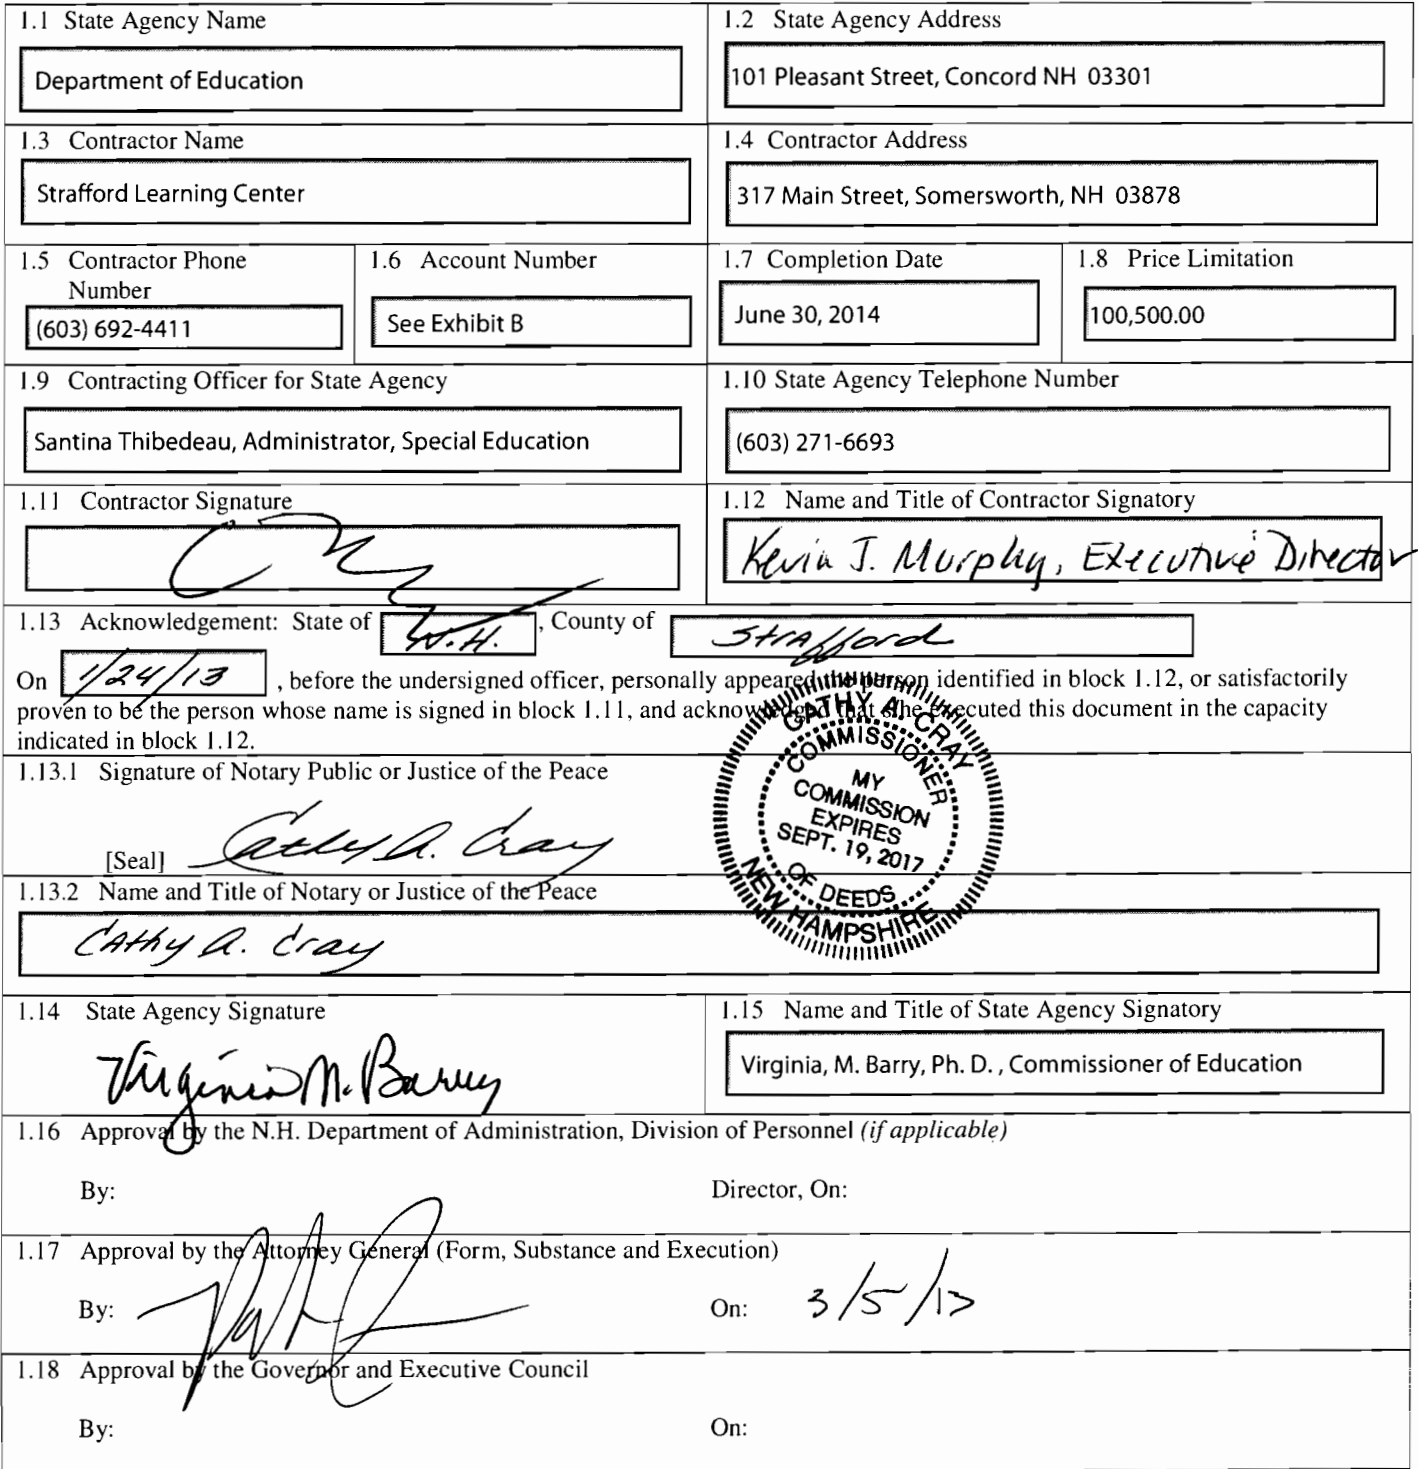 1.1 State Agency Name
Department of Education
1.2 State Agency Address
101 Pleasant Street, Concord NH 03301
1.3 Contractor Name
Strafford Learning Center
1.4 Contractor Address
317 Main Street, Somersworth, NH 03878
1.5 Contractor Phone
Number
(603) 692-4411
1.6 Account Number
See Exhibit B
1.7 Completion Date
June 30, 2014
1.8 Price Limitation
100,500.00
1.9 Contracting Officer for State Agency
Santina Thibedeau, Administrator, Special Education
1.10 State Agency Telephone Number
(603) 271-6693
1.11 Contractor Signature
1.12 Name and Title of Contractor Signatory
Kevin J. Murphy, Executive Director
1.13 Acknowledgement: State of N.H., County of Strafford
On 1/24/13, before the undersigned officer, personally appeared the person identified in block 1.12, or satisfactorily
proven to be the person whose name is signed in block 1.11, and acknowledged that s/he executed this document in the capacity
indicated in block 1.12.
CATHY A. CRAY
COMMISSIONER
MY
COMMISSION
EXPIRES
SEPT. 19, 2017
OF DEEDS
NEW HAMPSHIRE
1.13.1 Signature of Notary Public or Justice of the Peace
[Seal] Cathy A. Cray
1.13.2 Name and Title of Notary or Justice of the Peace
Cathy A. Cray
1.14 State Agency Signature
Virginia M. Barry
1.15 Name and Title of State Agency Signatory
Virginia, M. Barry, Ph. D. , Commissioner of Education
1.16 Approval by the N.H. Department of Administration, Division of Personnel (if applicable)
By: Director, On:
1.17 Approval by the Attorney General (Form, Substance and Execution)
By: On: 3/5/13
1.18 Approval by the Governor and Executive Council
By: On: